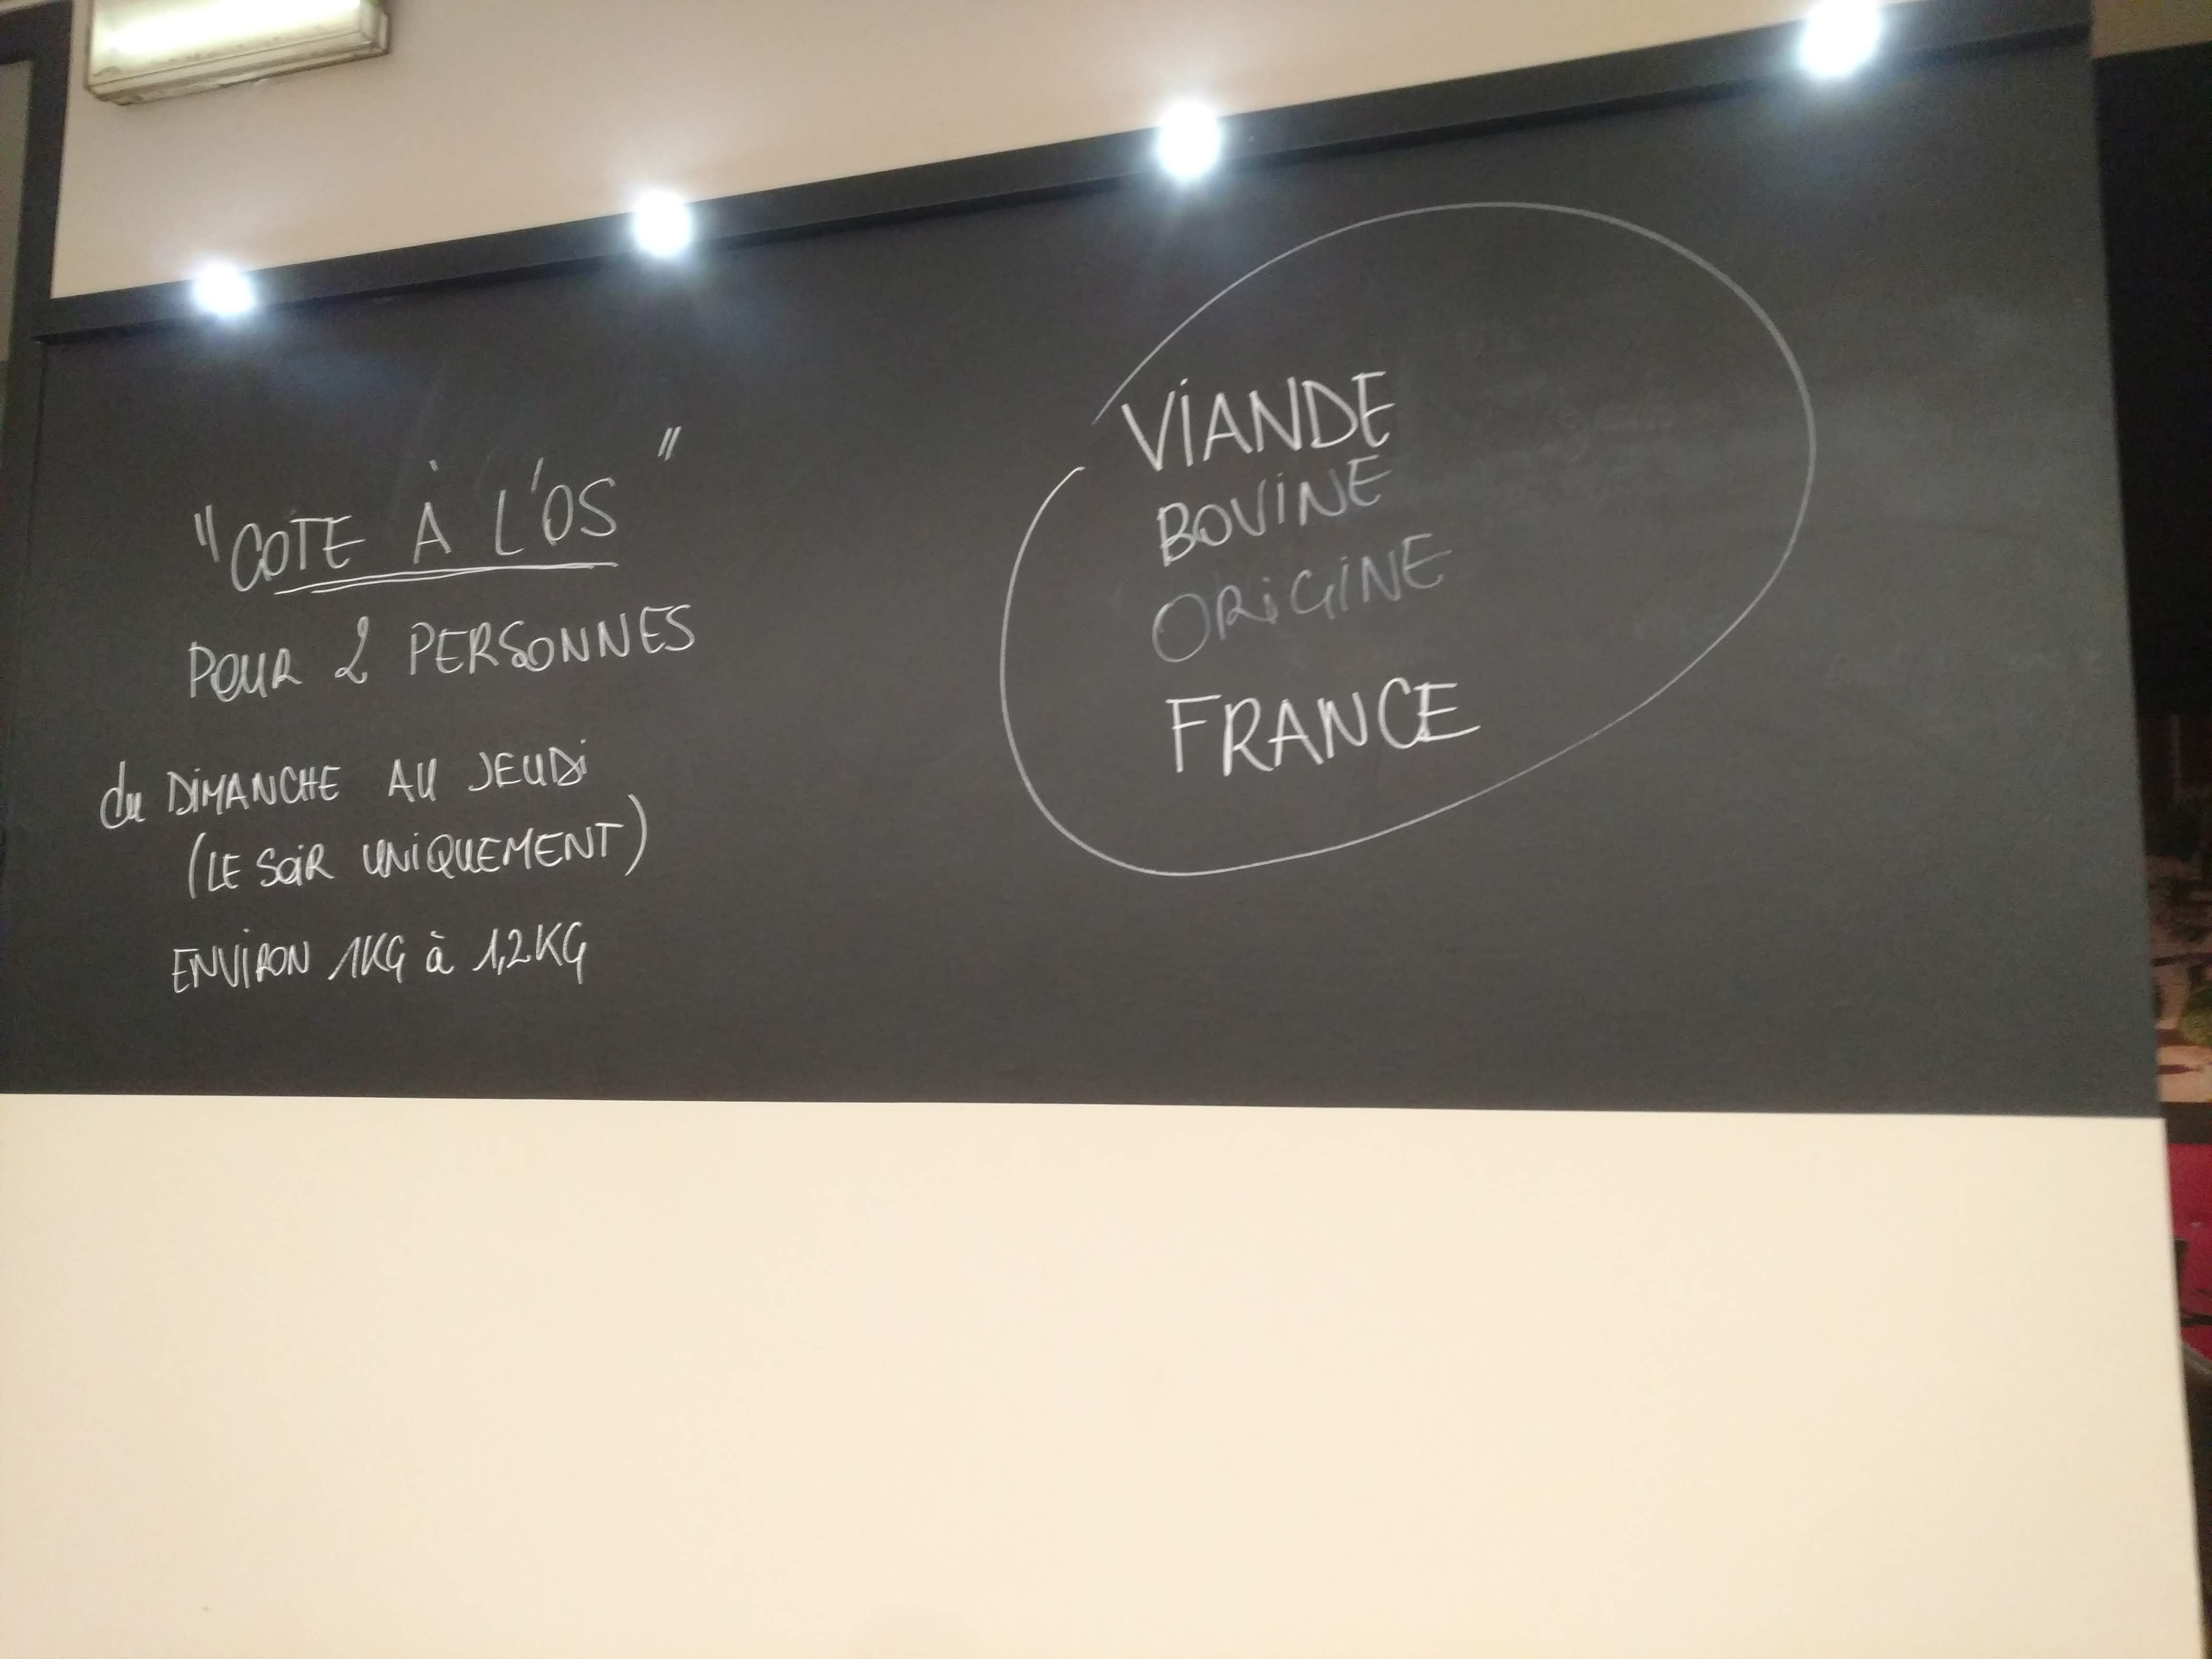 "COTE À L'OS"
POUR 2 PERSONNES
du DIMANCHE AU JEUDI
(LE SOIR UNIQUEMENT)
ENVIRON 1KG à 1,2KG
VIANDE
BOVINE
ORIGINE
FRANCE